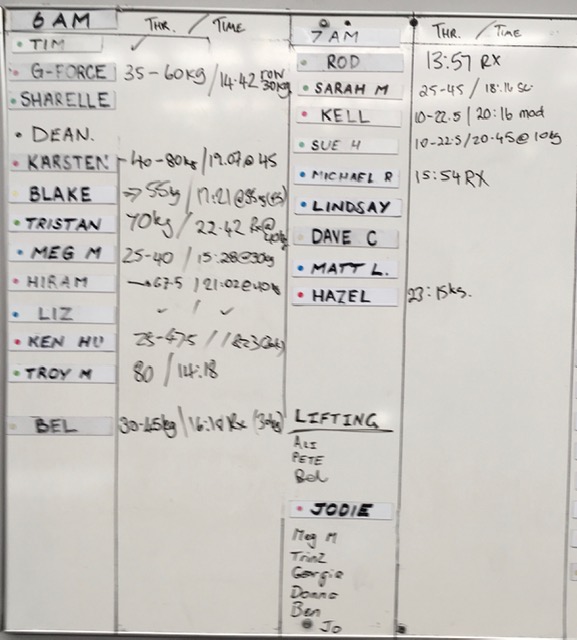 6 AM THR. / TIME
TIM ✓
G-FORCE 35-60kg / 14.42 row 30kg
SHARELLE
DEAN.
KARSTEN 40-80kg / 19.07 @ 45
BLAKE → 55kg / 17:21 @
TRISTAN 70kg / 22.42 Rx @ 40kg
MEG M 25-40 / 15:28 @ 30kg
HIRAM → 67.5 / 21:02 @ 40kg
LIZ ✓ / ✓
KEN HU 25-47.5 /
TROY M 80 / 14.18
BEL 30-45kg / 16:18 Rx (30kg)
7 AM THR. / TIME
ROD 13:57 RX
SARAH M 25-45 / 18:16 sc.
KELL 10-22.5 / 20:16 mod
SUE H 10-22.5/20.45 @ 10kg
MICHAEL R 15:54 RX
LINDSAY
DAVE C
MATT L.
HAZEL 23:15
LIFTING
ALI
PETE
Bel
JODIE
Meg M
Georgie
Donna
Ben
Jo